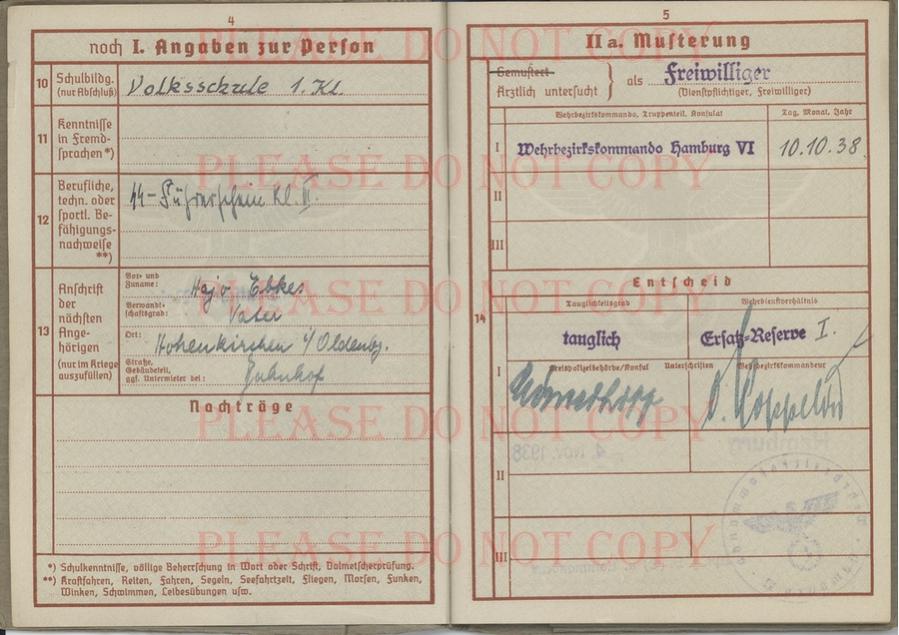 4
noch I. Angaben zur Person
10 Schulbildg. (nur Abschluß) Volksschule 1. Kl.
11 Kenntnisse in Fremd-
sprachen *)
12 Berufliche, techn. oder sportl. Be-
fähigungs-
nachweise **)
44-Führerschein Kl. II.
13 Anschrift der nächsten Ange-
hörigen
(nur im Kriege auszufüllen)
Vor- und Zuname: Hajo Ebkes
Verwandt-
schaftsgrad: Vater
Ort: Hohenkirchen i/Oldenbg.
Straße, Gebäudeteil, ggf. Untermieter bei: Bahnhof
Nachträge
*) Schulkenntnisse, völlige Beherrschung in Wort oder Schrift, Dolmetscherprüfung.
**) Kraftfahren, Reiten, Fahren, Segeln, Seefahrtzeit, Fliegen, Morsen, Funken,
Winken, Schwimmen, Leibesübungen usw.
5
II a. Musterung
Gemustert
Ärztlich untersucht
als Freiwilliger
(Dienstpflichtiger, Freiwilliger)
Wehrbezirkskommando, Truppenteil, Konsulat
Tag, Monat, Jahr
I Wehrbezirkskommando Hamburg VI 10.10.38
II
III
14
Entscheid
Tauglichkeitsgrad
Wehrdienstverhältnis
tauglich
Ersatz-Reserve I.
I
Kreispolizeibehörde/Konsul
Unterschriften
Wehrbezirkskommandeur
II
III
4. Nov. 1938
Hamburg
PLEASE DO NOT COPY
PLEASE DO NOT COPY
PLEASE DO NOT COPY
PLEASE DO NOT COPY
PLEASE DO NOT COPY